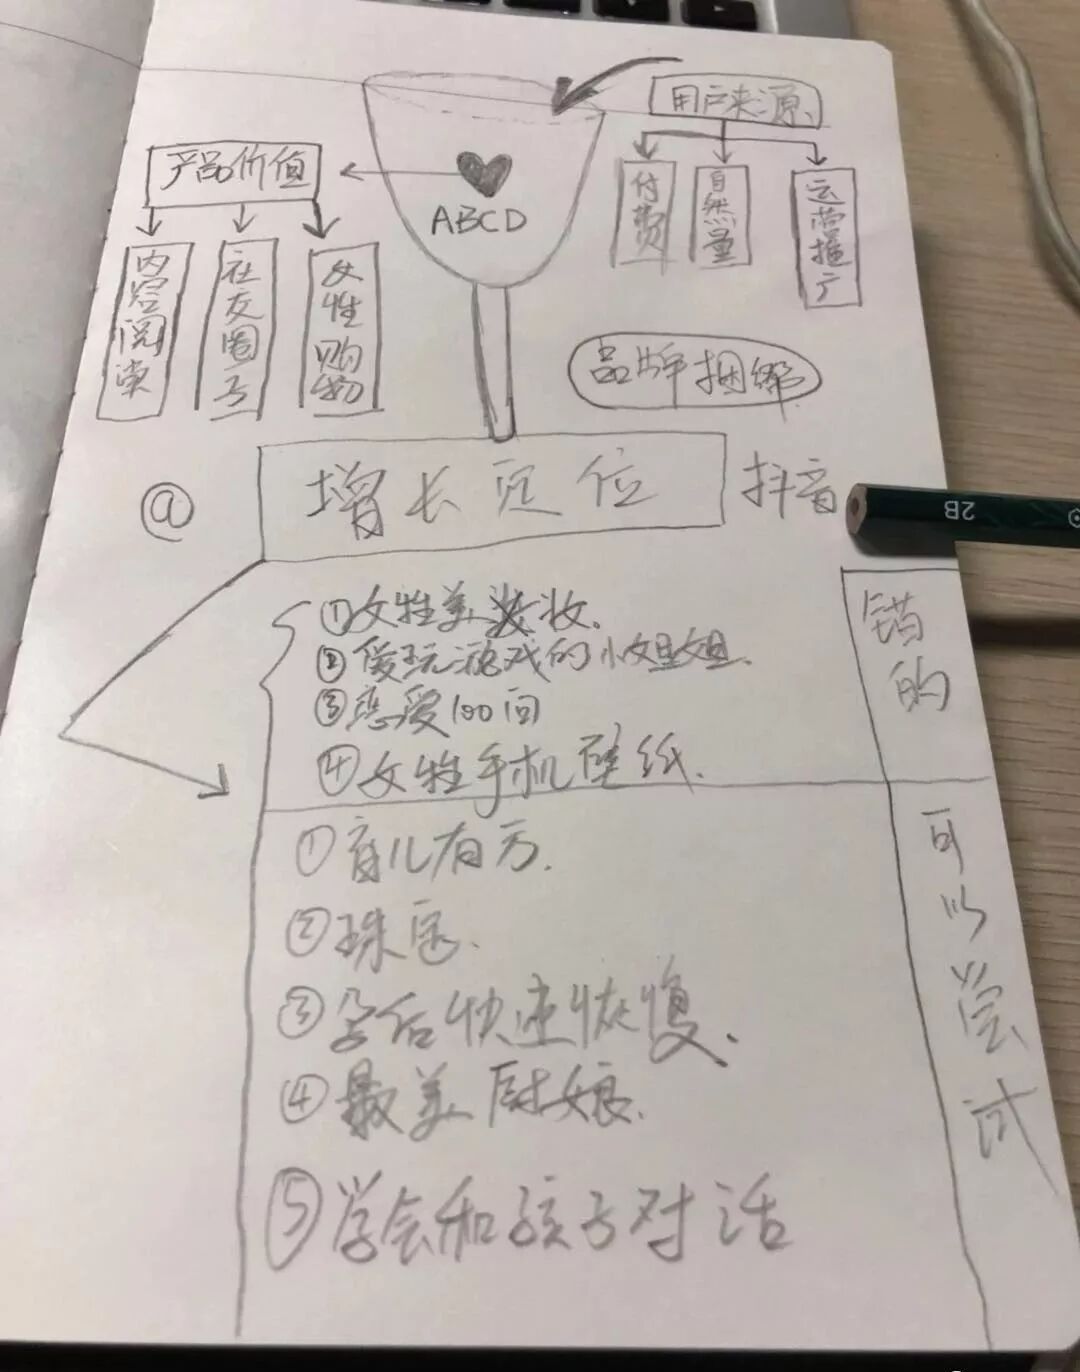 用户来源
产品价值
付费
自然量
运营推广
ABCD
内容阅读
社交圈子
女性购物
品牌捆绑
@
增长定位
抖音
2B
①女性美妆.
②爱玩游戏的小姐姐.
③恋爱100问
④女性手机壁纸.
错的
①育儿有方.
②珠宝.
③孕后快速恢复.
④最美厨娘.
⑤学会和孩子对话
可以尝试